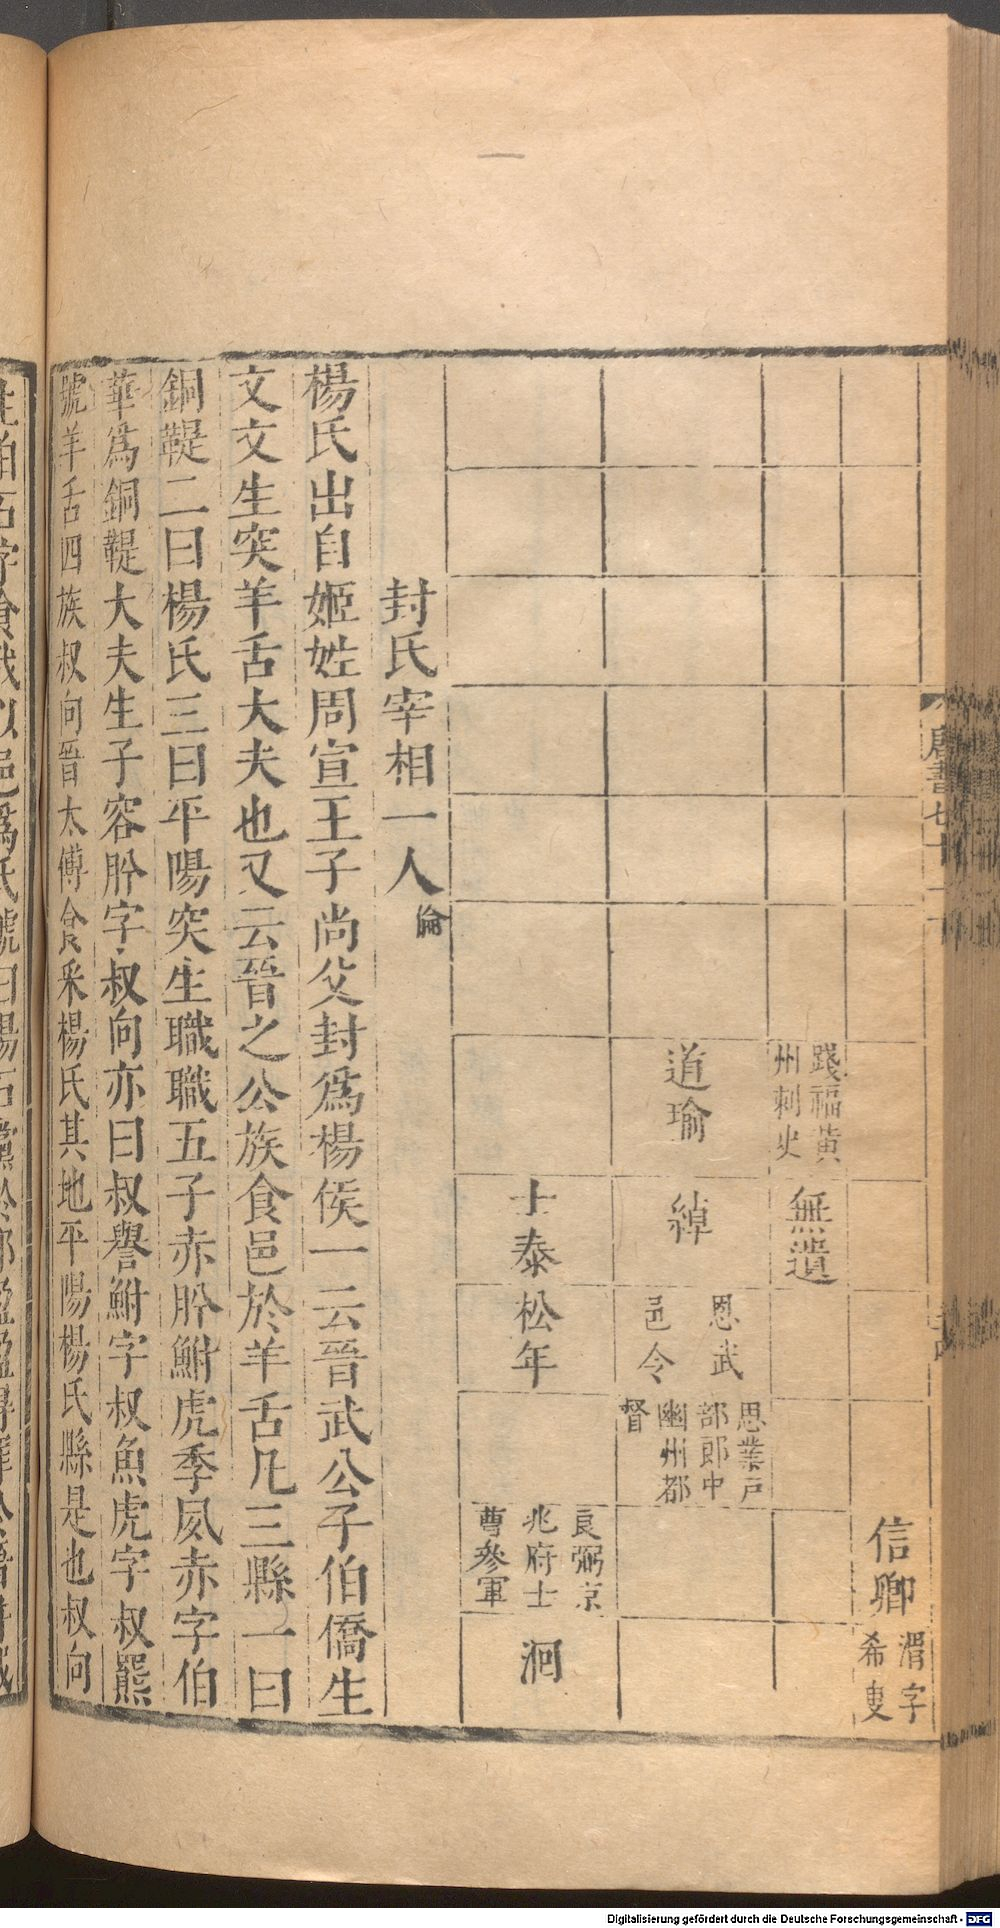 唐書七十一下
信卿
渭字
希叟
踐福黃
州刺史
無遺
道瑜
綽
思武
邑令
思業戶
部郎中
幽州都
督
士泰
松年
良弼京
兆府士
曹參軍
洄
封氏宰相一人倫
楊氏出自姬姓周宣王子尚父封爲楊侯一云晉武公子伯僑生
文文生突羊舌大夫也又云晉之公族食邑於羊舌凡三縣一曰
銅鞮二曰楊氏三曰平陽突生職職五子赤肸鮒虎季夙赤字伯
華爲銅鞮大夫生子容肸字叔向亦曰叔譽鮒字叔魚虎字叔羆
號羊舌四族叔向晉太傅食采楊氏其地平陽楊氏縣是也叔向
Digitalisierung gefördert durch die Deutsche Forschungsgemeinschaft - DFG